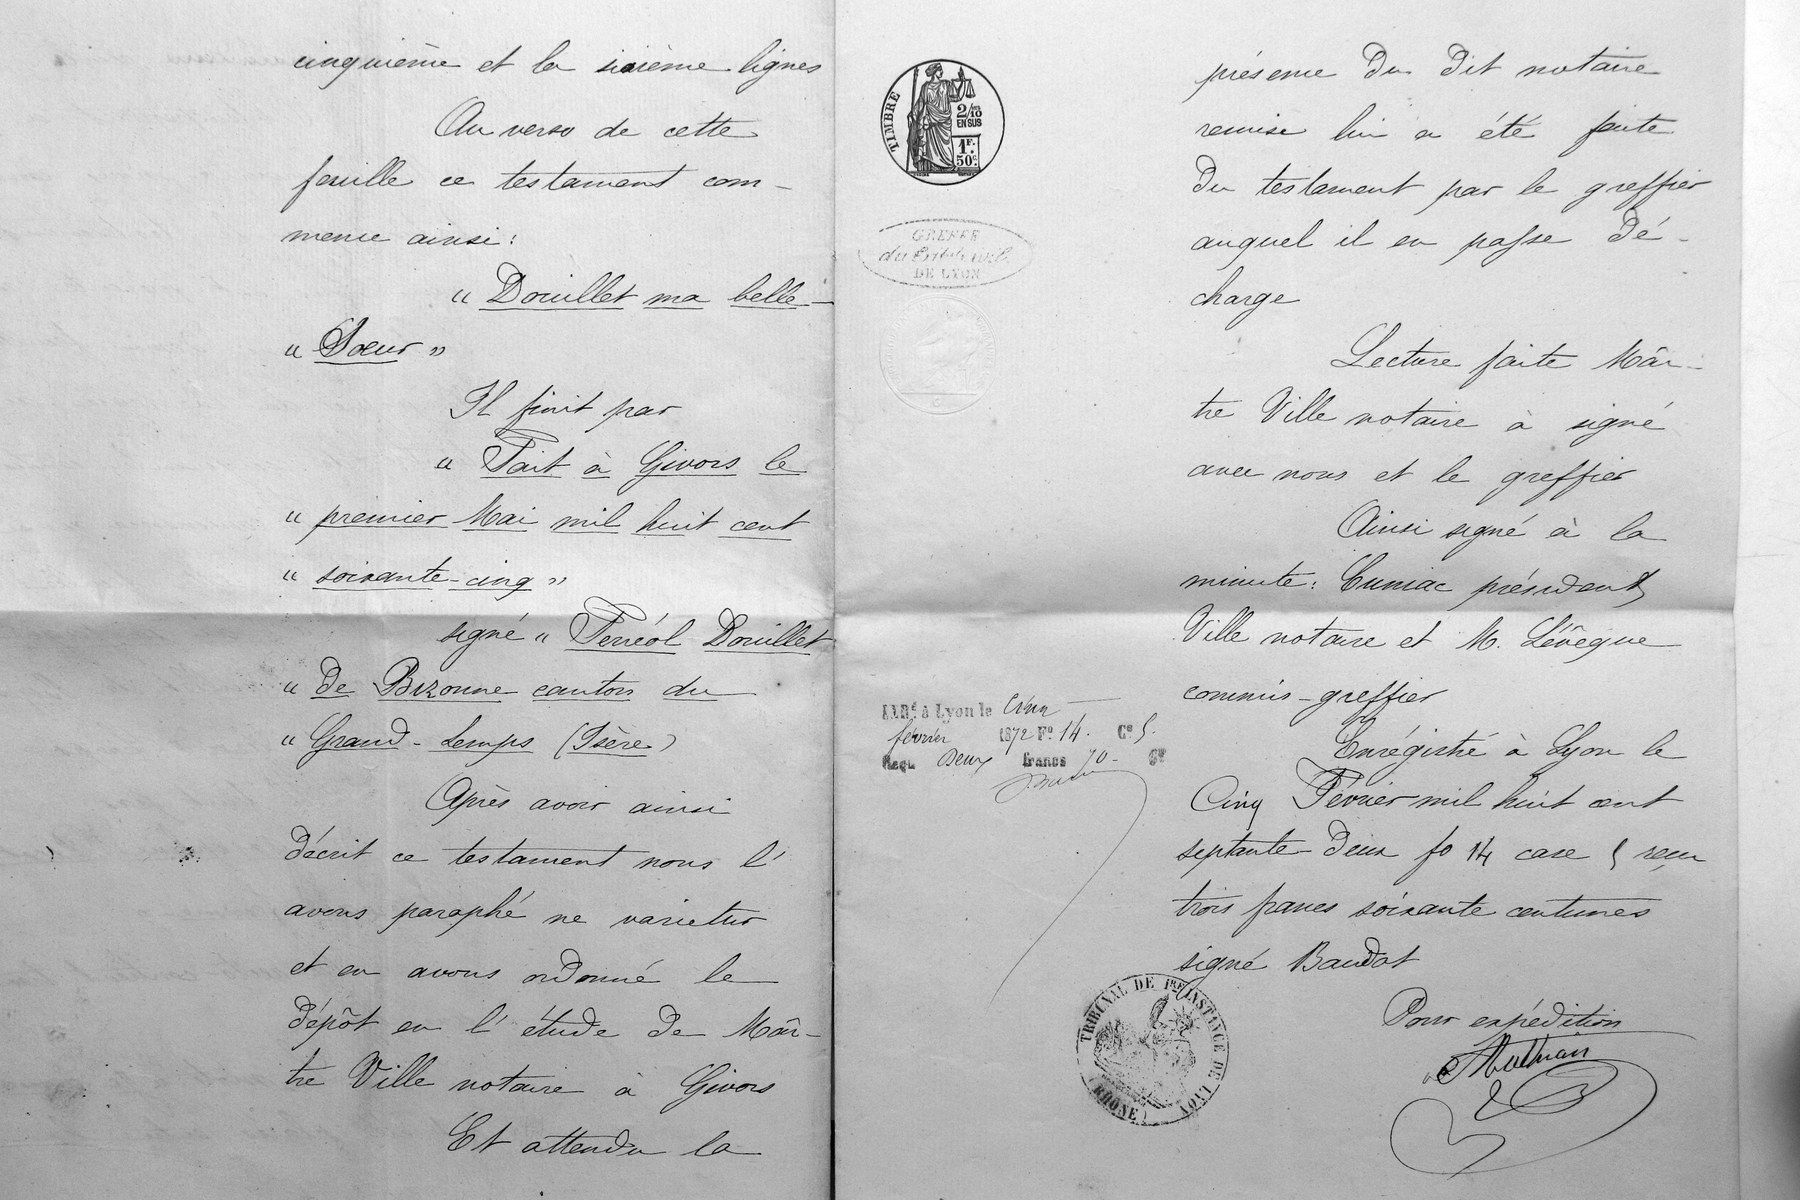 cinquième et la sixième lignes
Au verso de cette
feuille ce testament com-
mence ainsi :
" Douillet ma belle-
" Soeur "
Il finit par
" Fait à Givors le
" premier Mai mil huit cent
" soixante-cinq "
signé " Ferréol Douillet
" De Bizonne canton du
" Grand-Lemps (Isère)
Après avoir ainsi
décrit ce testament nous l'
avons paraphé ne varietur
et en avons ordonné le
dépôt en l'étude de Maî-
tre Ville notaire à Givors
Et attendu la
TIMBRE
2/10
EN SUS
1F.
50c.
GREFFE
DE LYON
à Lyon le Cinq
février 1872 Fo 14. Co 5.
Reçu Deux francs 70 Ce
présence du dit notaire
remise lui a été faite
du testament par le greffier
auquel il en passe dé-
charge
Lecture faite Maî-
tre Ville notaire à signé
avec nous et le greffier
Ainsi signé à la
minute : Cuniac président
Ville notaire et M. Lévêque
commis-greffier
Enrégistré à Lyon le
Cinq Février mil huit cent
septante-deux fo 14 case 5 reçu
trois francs soixante centimes
signé Baudot
TRIBUNAL DE 1RE INSTANCE DE LYON
(RHÔNE)
Pour expédition